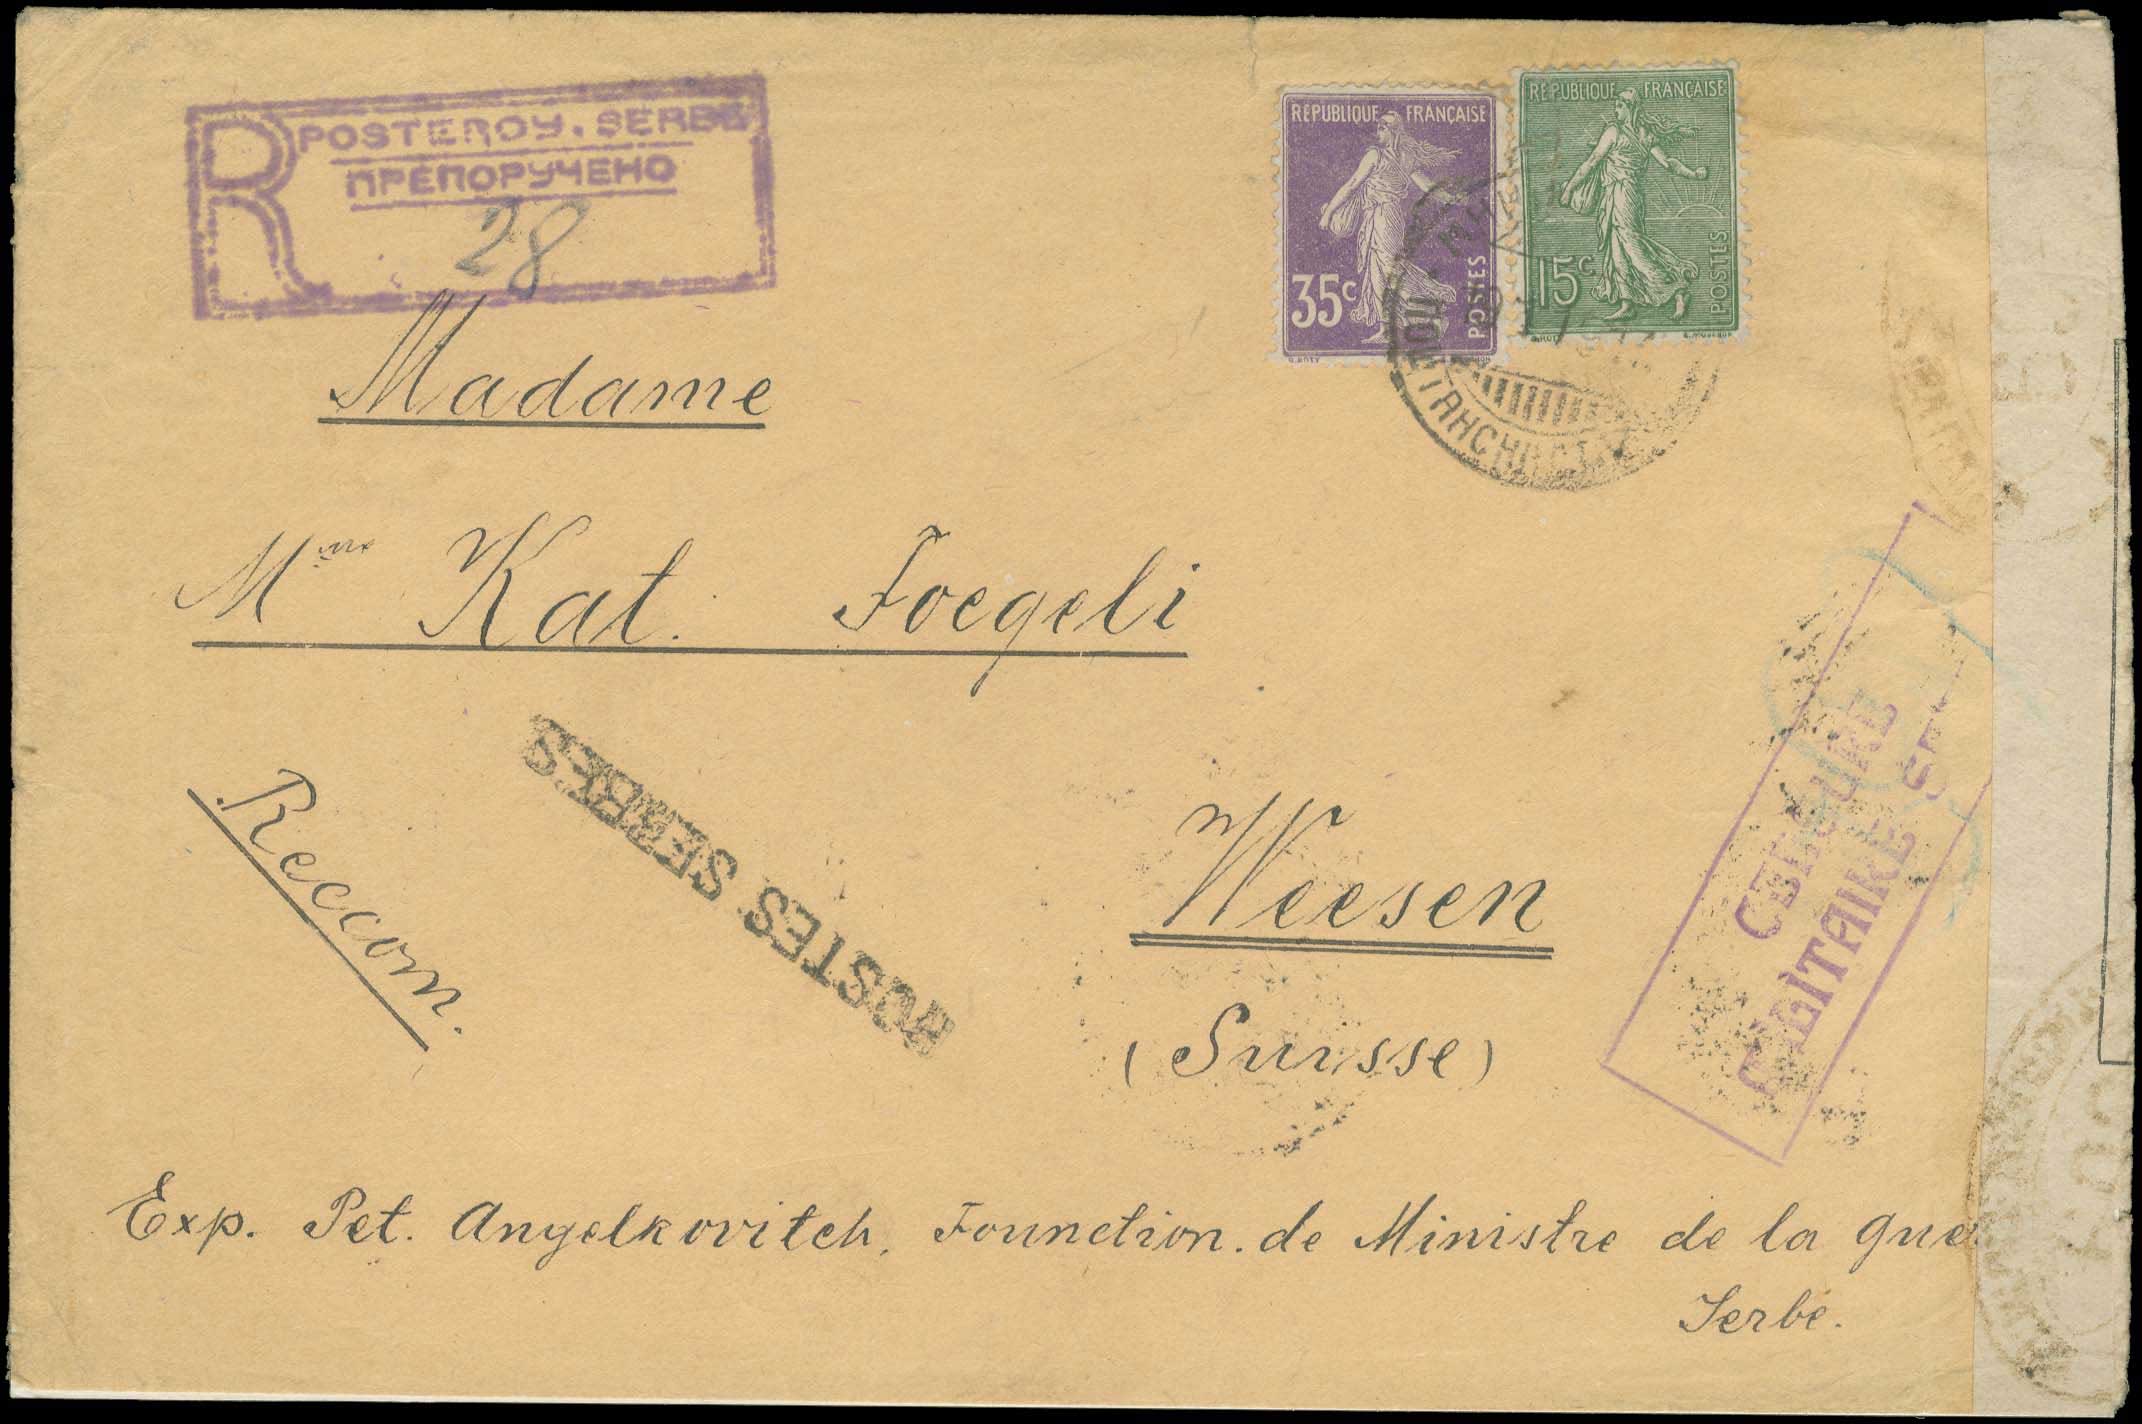 R
POSTE ROY. SERBE
ПРЕПОРУЧЕНО
28
RÉPUBLIQUE FRANÇAISE
35c
POSTES
RÉPUBLIQUE FRANÇAISE
15c
POSTES
Madame
Mme Kat. Foegeli
Recom.
POSTES SERBES
Weesen
(Suisse)
CENSURE
Exp. Pet. Angelkovitch, Founction. de Ministre de la gue
Serbe.